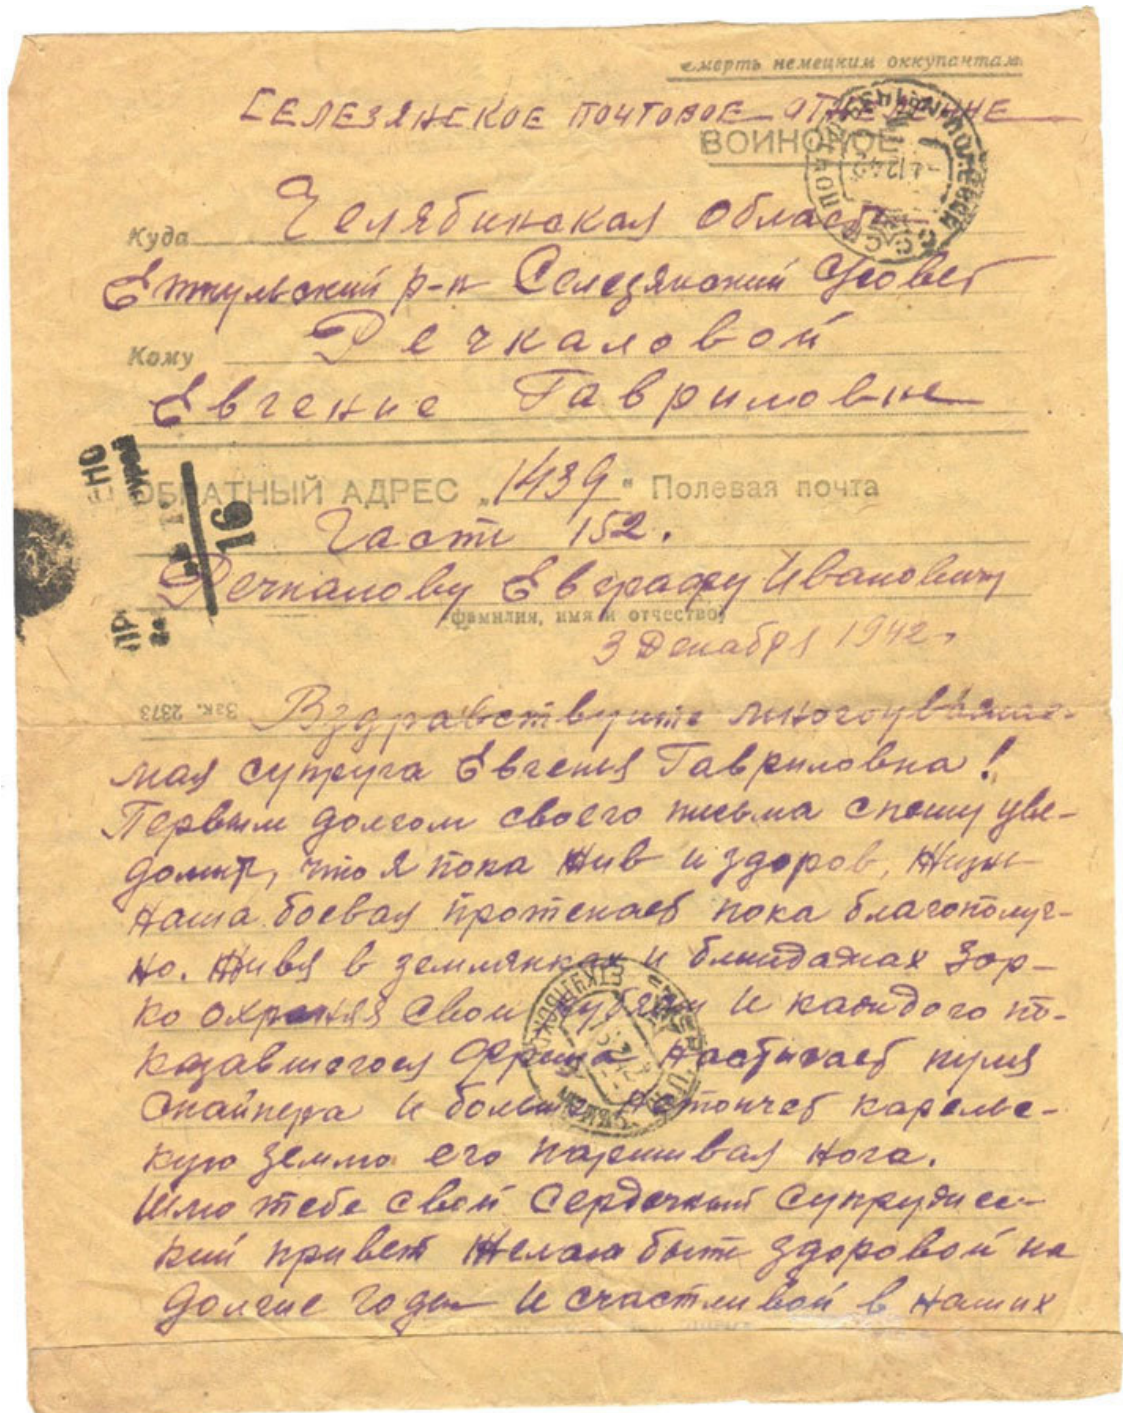 Смерть немецким оккупантам
СЕЛЕЗЯНСКОЕ ПОЧТОВОЕ ОТДЕЛЕНИЕ
ВОИНСКОЕ
Куда Челябинская область
Еткульский р-н Селезянский С/совет
Кому Речкаловой
Евгение Гавриловне
ОБРАТНЫЙ АДРЕС „1439" Полевая почта
Части 152.
Речкалову Евграфу Ивановичу
фамилия, имя и отчество
3 Декабря 1942.
Зак. 2373 Вздравствуите многоуважае-
мая супруга Евгения Гавриловна!
Первым долгом своего письма спешу уве-
домит, что я пока жив и здоров, Жизн
Наша боевая протекает пока благополуч-
но. Живя в землянках и блиндажах Зор-
ко охраняя свои рубежи и каждого по-
казавшегося Фрица Настигает пуля
Снайпера и больше Не топчет карельс-
кую землю его паршивая Нога.
Шлю тебе свой Сердечный Супружес-
кий привет Желаю быть здоровой на
Долгие годы и счастливой в Наших